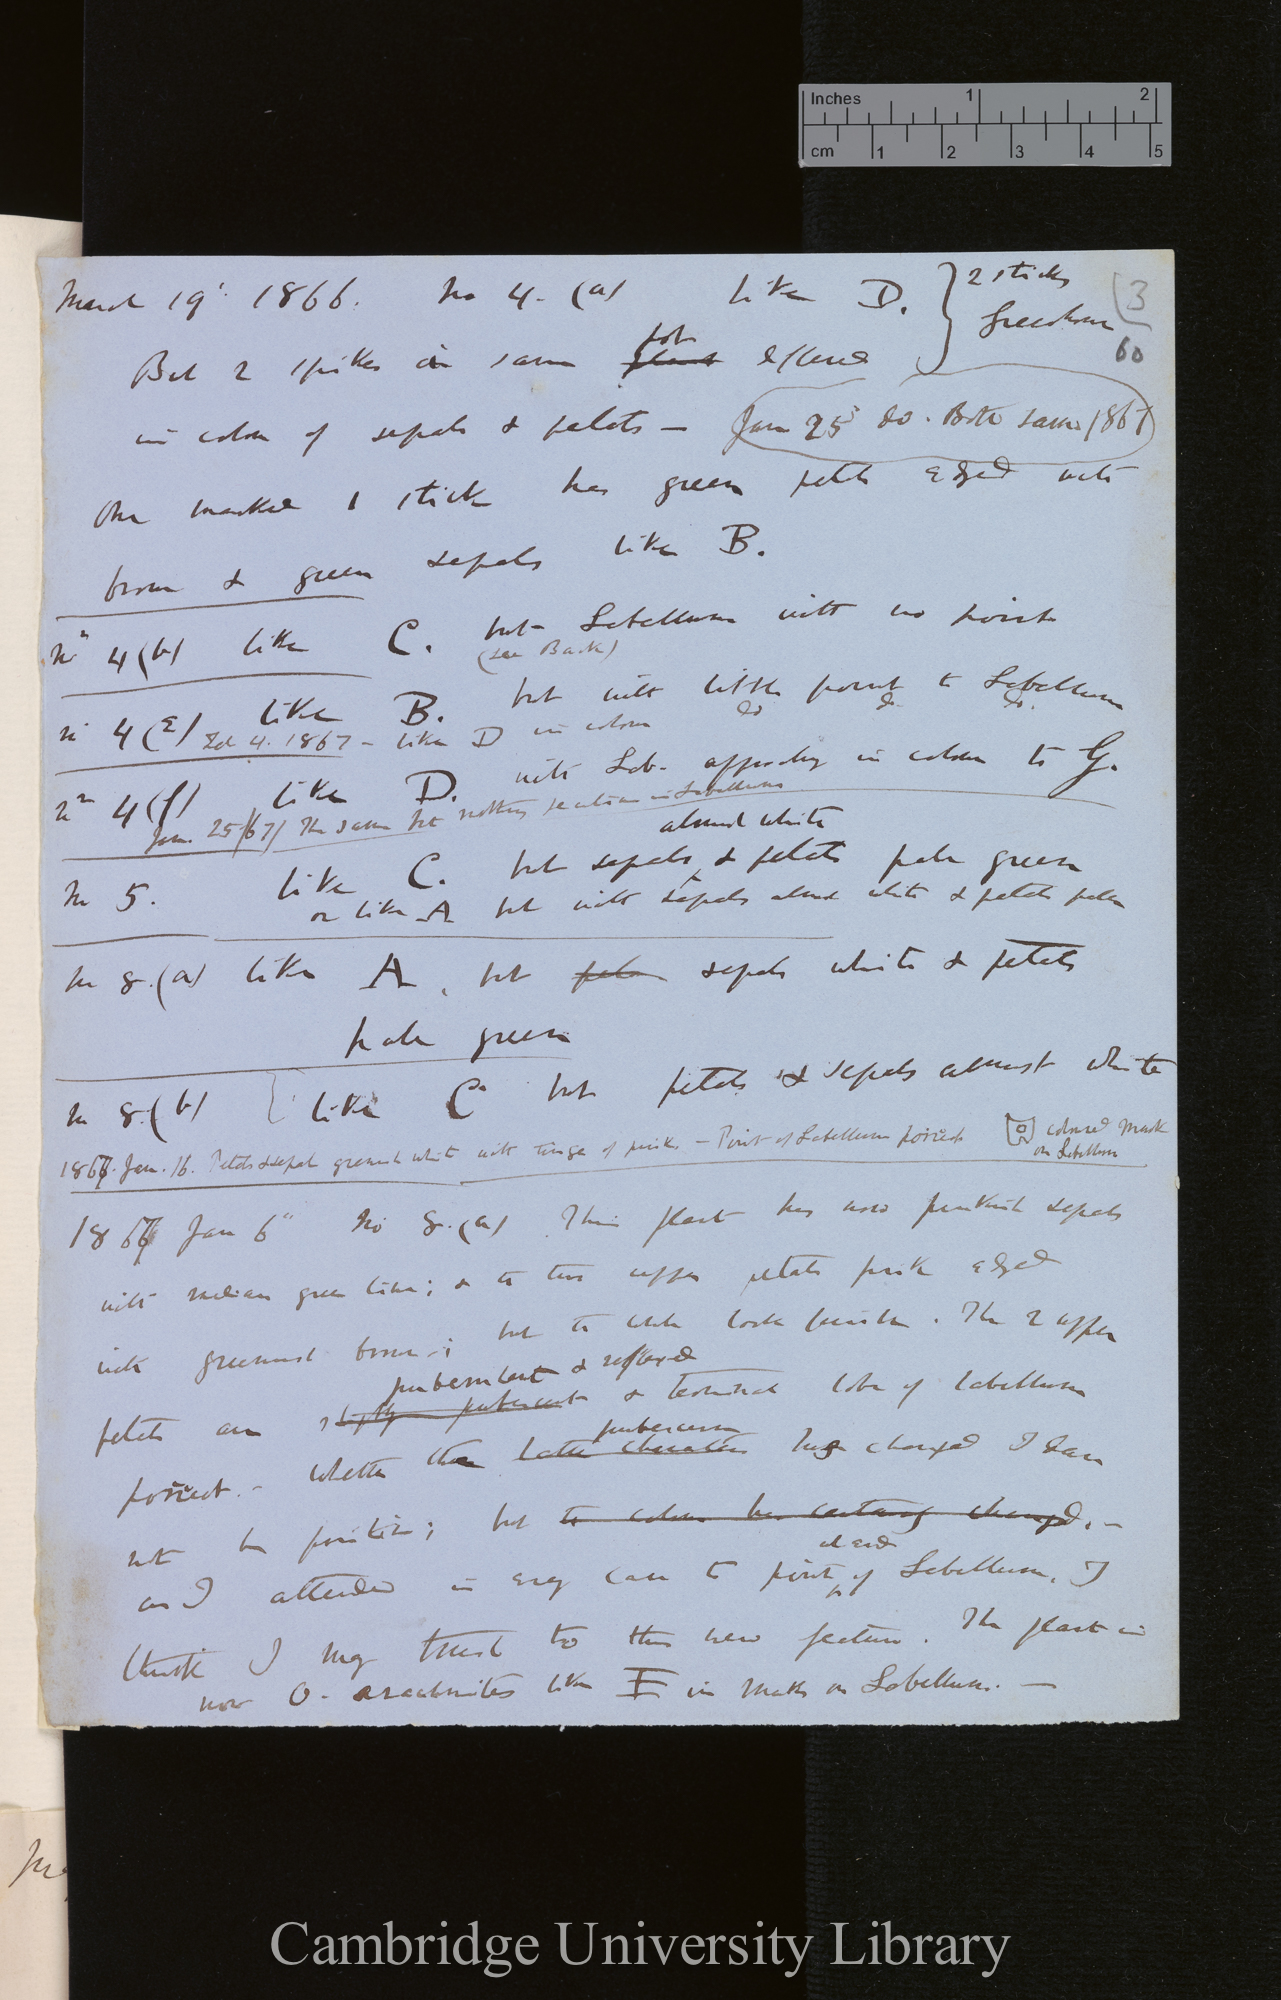 Inches 1 2
cm 1 2 3 4 5
3
60
March 19' 1866. No 4. (a) like D. } 2 sticks
Greenhouse
But 2 spikes in same plant pot differed
in colour of sepals & petals — Jan 25 do. Both same 1867
One marked 1 stick has green petals edged with
brown & green sepals like B.
No 4 (b) like C. but Labellum with no point
(see Back)
4 (e) like B. but with little point to Labellum
do do do
Feb 4. 1867 — like D in colour
4 (f) like D. with Lab. approaching in colour to G.
Jan. 25/67/ The same but nothing peculiar in Labellum
almost white
No 5. like C. but sepals ^ & petals pale green
or like A but with sepals almost white & petals pale
No 8. (a) like A, but pale sepals white & petals
pale green
No 8. (b) like C but petals & sepals almost white
1867. Jan. 16. Petals & sepals greenish white with tinge of pink — Point of Labellum porrect coloured mark
on Labellum
1867 Jan 6" No 8. (a) This plant has now pinkish sepals
with median green line; & the two upper petals pink edged
with greenish brown; but the whole look pinkish. The 2 upper
pubescent & reflexed
petals are slightly pubescent & terminal lobe of labellum
pubescence
porrect. — Whether the latter characters has changed I dare
not be positive; but the colour has certainly changed. —
as I attended in every case to point of Labellum, I
think I may trust to this new feature. The plant is
now O. arachnites like E in marks on Labellum. —
Cambridge University Library